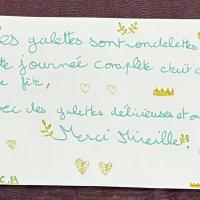 es galettes sont rondelettes
te journeé complète c'était
e fête
vec des galettes délicieuses et
Merci Mireille
C.H